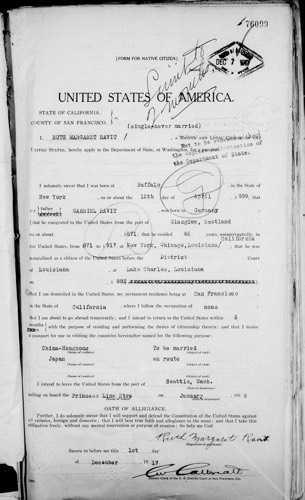 76099
[FORM FOR NATIVE CITIZEN.]
DEC 7 1917
UNITED STATES OF AMERICA.
STATE OF CALIFORNIA,
COUNTY OF SAN FRANCISCO.
(single, never married)
I, RUTH MARGARET RAVIT, A NATIVE AND LOYAL CITIZEN OF THE
UNITED STATES, hereby apply to the Department of State, at Washington, for a
Not to be
the express authorization of
the Department of State.
I solemnly swear that I was born at Buffalo, in the State of
New York on or about the 18th day of April
father GABRIEL RAVIT, Germany
that he emigrated to the United States from the port of Glasgow, Scotland
on or about 1871; that he resided 46 years, uninterruptedly, in
California
the United States, from 1871 to 1917, at New York, Chicago, Louisiana; that he was
naturalized as a citizen of the United States before the District Court
of Louisiana at Lake Charles, Louisiana
on
that I am domiciled in the United States, my permanent residence being at San Francisco
in the State of California where I follow the occupation of none
that I am about to go abroad temporarily; and I intend to return to the United States within 6
months with the purpose of residing and performing the duties of citizenship therein; and that I desire
passport for use in visiting the countries hereinafter named for the following purpose:
China-Hongkong To be married
(Name of country.) (Object of visit.)
Japan en route
(Name of country.) (Object of visit.)
I intend to leave the United States from the port of Seattle, Wash.
sailing on board the Princess Line Strs on January
OATH OF ALLEGIANCE.
Further, I do solemnly swear that I will support and defend the Constitution of the United States against
all enemies, foreign and domestic; that I will bear true faith and allegiance to the same; and that I take this
obligation freely, without any mental reservation or purpose of evasion: So help me God.
Ruth Margaret Ravit
Sworn to before me this 1st day
of December 1917